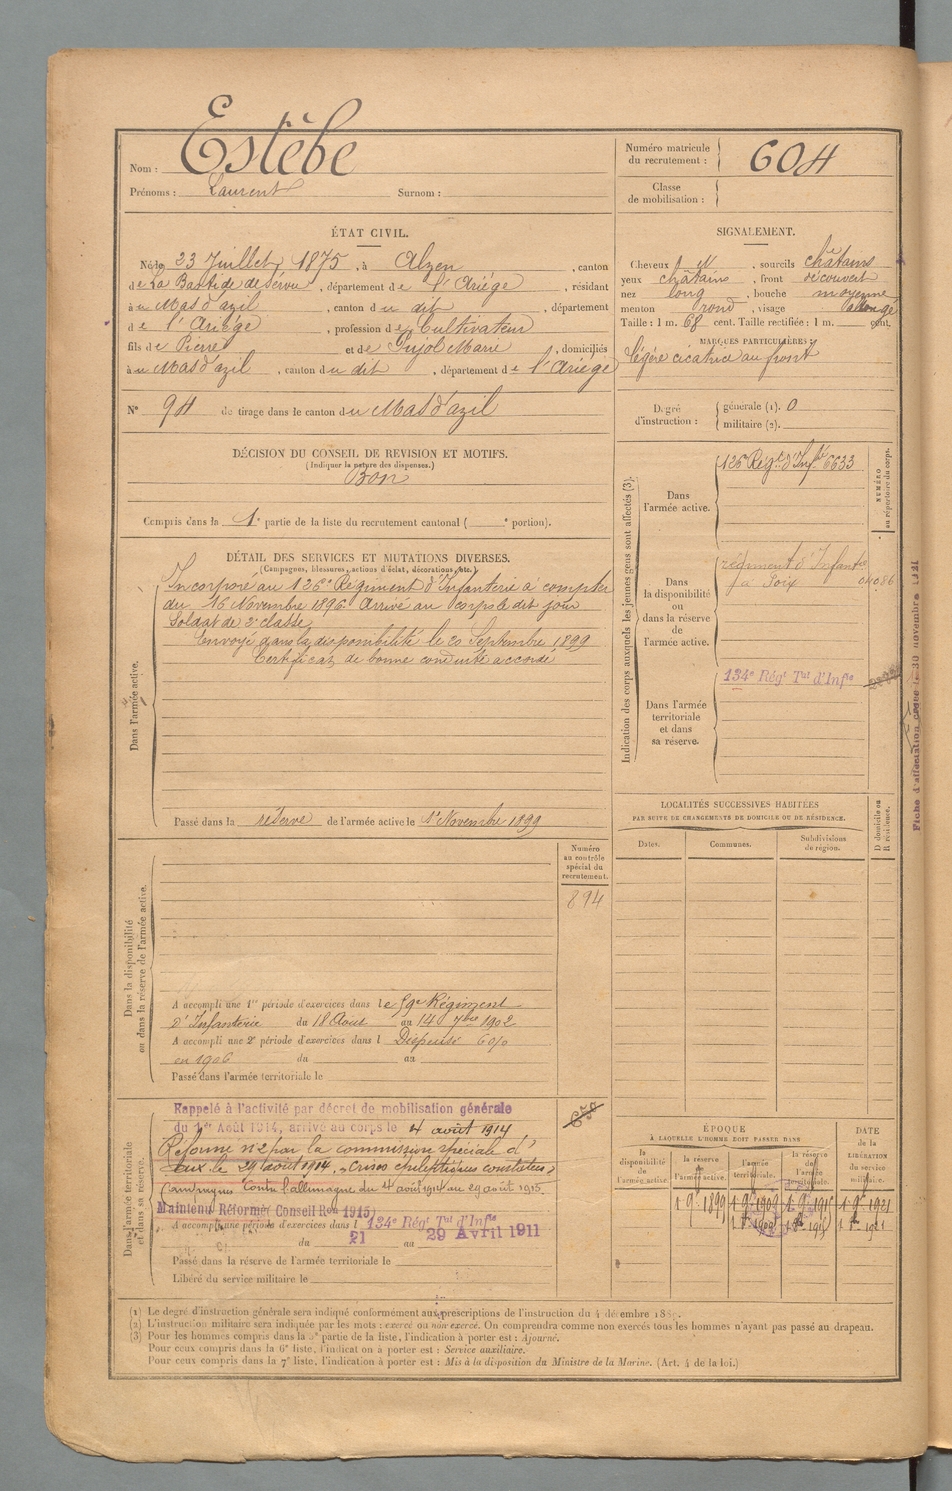 Nom : Estèbe
Prénoms : Laurent Surnom :
Numéro matricule du recrutement : 604
Classe de mobilisation :
ÉTAT CIVIL.
Né le 23 Juillet 1875, à Alzen, canton
de La Bastide de Sérou, département de l'Ariège, résidant
au Mas d'azil, canton du dit, département
de l'Ariège, profession de Cultivateur
fils de Pierre et de Pujol Marie, domiciliés
au Mas d'azil, canton du dit, département de l'Ariège
N° 94 de tirage dans le canton du Mas d'azil
SIGNALEMENT.
Cheveux, sourcils châtains
yeux châtains, front découvert
nez long, bouche moyenne
menton rond, visage allongé
Taille : 1 m. 68 cent. Taille rectifiée : 1 m. cent.
MARQUES PARTICULIÈRES :
légère cicatrice au front
Degré d'instruction : générale (1). 0
militaire (2).
DÉCISION DU CONSEIL DE REVISION ET MOTIFS.
(Indiquer la nature des dispenses.)
Bon
Compris dans la 1e partie de la liste du recrutement cantonal ( e portion).
DÉTAIL DES SERVICES ET MUTATIONS DIVERSES.
(Campagnes, blessures, actions d'éclat, décorations, etc.)
Dans l'armée active.
Incorporé au 126e Régiment d'Infanterie à compter
du 16 Novembre 1896. Arrivé au Corps le dit jour
Soldat de 2e classe
Envoyé dans la disponibilité le 20 Septembre 1899
Certificat de bonne conduite accordé
Passé dans la réserve de l'armée active le 1er Novembre 1899
Indication des corps auxquels les jeunes gens sont affectés (3).
NUMÉRO au répertoire du corps.
Dans l'armée active.
126 Régt d'Infie 6633
Dans la disponibilité ou dans la réserve de l'armée active.
régiment d'Infanterie
à Foix 04086
Dans l'armée territoriale et dans sa réserve.
134e Régt Tal d'Infie
Fiche d'affectation créée le 30 novembre
LOCALITÉS SUCCESSIVES HABITÉES
PAR SUITE DE CHANGEMENTS DE DOMICILE OU DE RÉSIDENCE.
Dates. Communes. Subdivisions de région. D domicile ou R résidence.
Dans la disponibilité ou dans la réserve de l'armée active.
Numéro au contrôle spécial du recrutement.
894
A accompli une 1re période d'exercices dans le 59e Régiment
d'Infanterie du 18 Août au 14 7bre 1902
A accompli une 2e période d'exercices dans l Dispensé 6 0/0
en 1906 du au
Passé dans l'armée territoriale le
Dans l'armée territoriale et dans sa réserve.
Rappelé à l'activité par décret de mobilisation générale
du 1er Août 1914, arrivé au corps le 4 août 1914
Réformé n°2 par la commission spéciale d'
Aux le 29 août 1914, "crises épileptiques constatées"
Campagnes Contre l'allemagne du 4 août 1914 au 29 août 1915.
Maintenu Réformé (Conseil Ron 1915)
A accompli une période d'exercices dans l 134e Régt Tal d'Infie
du 21 au 29 Avril 1911
Passé dans la réserve de l'armée territoriale le
Libéré du service militaire le
ÉPOQUE
À LAQUELLE L'HOMME DOIT PASSER DANS
la disponibilité de l'armée active. la réserve de l'armée active. l'armée territoriale. la réserve de l'armée territoriale.
DATE de la LIBÉRATION du service militaire.
1 9e 1899 1 9e 1909 1 9e 1915 1 9e 1921
1 8e 1909 1 8e 1915 1 8e 1921
(1) Le degré d'instruction générale sera indiqué conformément aux prescriptions de l'instruction du 4 décembre 1889.
(2) L'instruction militaire sera indiquée par les mots : exercé ou non exercé. On comprendra comme non exercés tous les hommes n'ayant pas passé au drapeau.
(3) Pour les hommes compris dans la 5e partie de la liste, l'indication à porter est : Ajourné.
Pour ceux compris dans la 6e liste, l'indication à porter est : Service auxiliaire.
Pour ceux compris dans la 7e liste, l'indication à porter est : Mis à la disposition du Ministre de la Marine. (Art. 4 de la loi.)